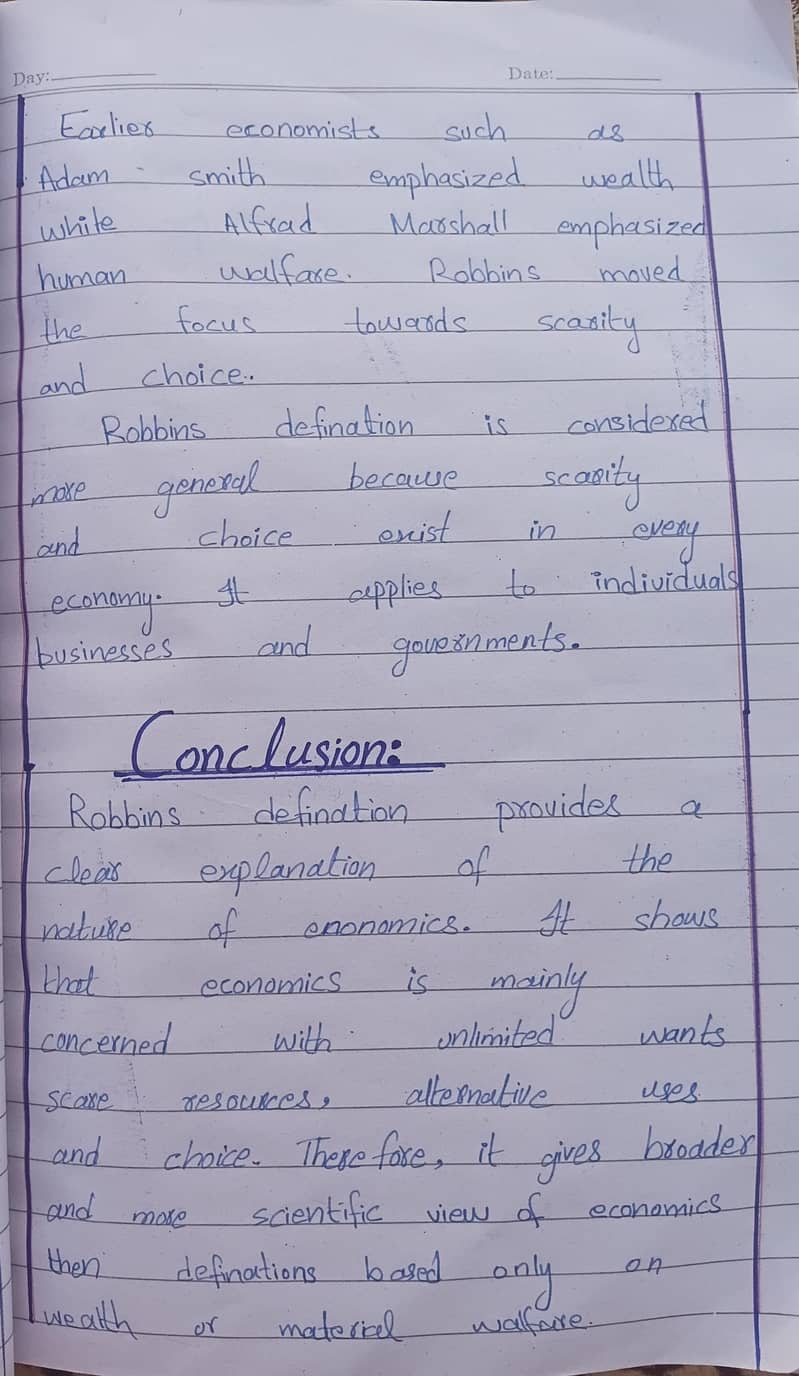 Day:
Date:
Earlier economists such as
Adam smith emphasized wealth
white Alfrad Marshall emphasized
human walfare. Robbins moved
the focus towards scarity
and choice.
Robbins defination is considered
more general because scarity
and choice exist in every
economy. It applies to individuals
businesses and governments.
Conclusion:
Robbins defination provides a
clear explanation of the
nature of enonomics. It shows
that economics is mainly
concerned with unlimited wants
scare resources, alternative uses
and choice. Therefore, it gives broader
and more scientific view of economics
then definations based only on
wealth or material walfare.